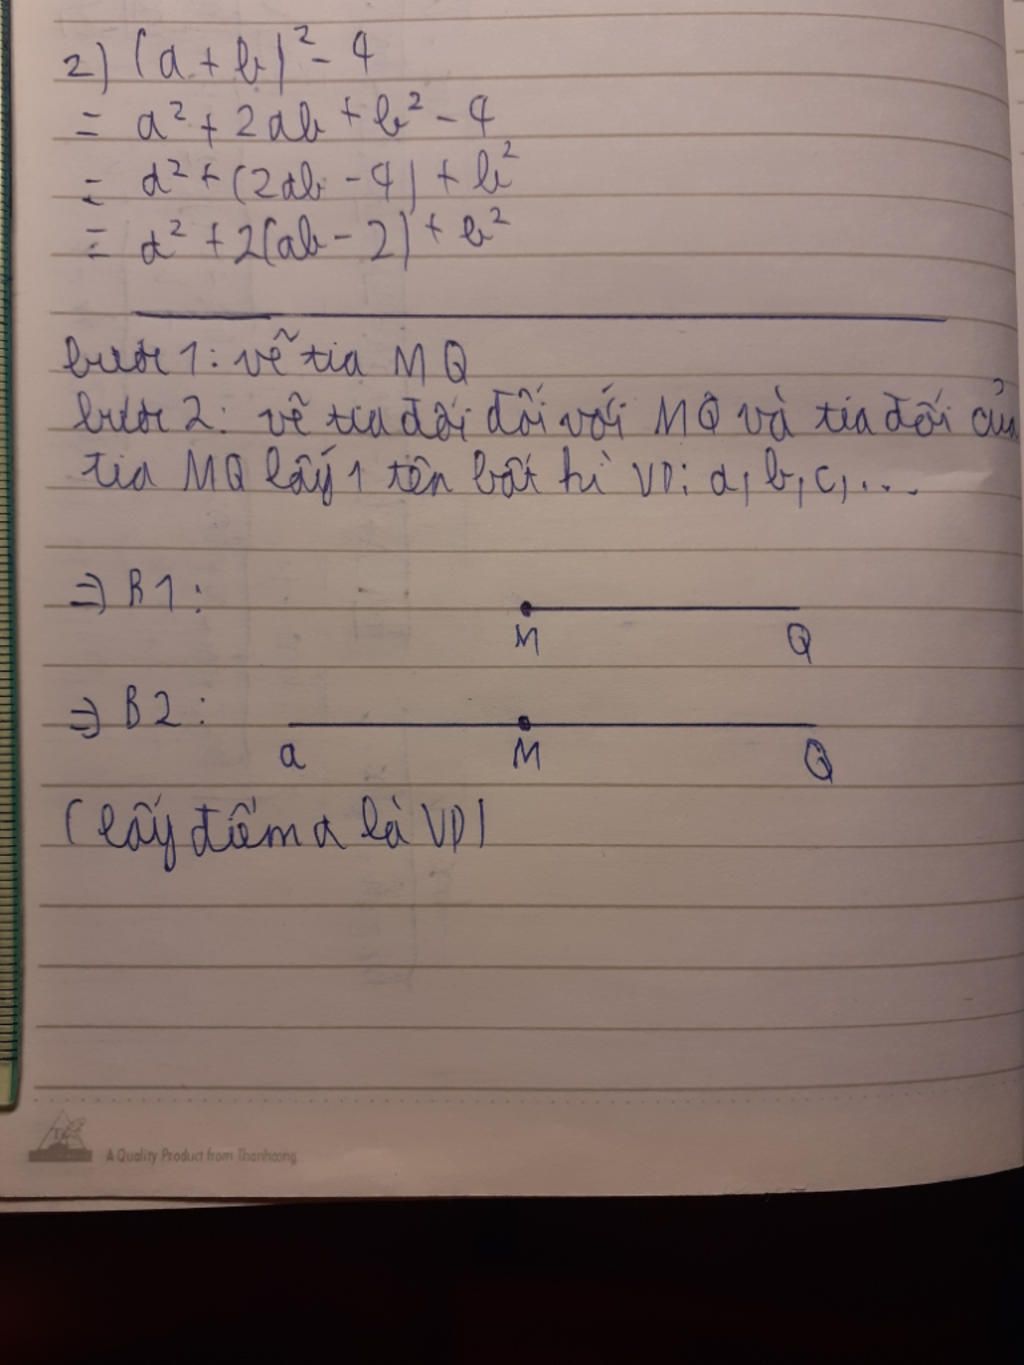 2) (a + b)² - 4
= a² + 2ab + b² - 4
= a² + (2ab - 4) + b²
= a² + 2(ab - 2) + b²
bước 1: vẽ tia MQ
bước 2: vẽ tia đối đối với MQ và tia đối của
tia MQ lấy 1 tên bất kì VD: a, b, c, ...
=> B1:
M Q
=> B2:
a M Q
(lấy điểm a là VD)
A Quality Product from Thanhoong